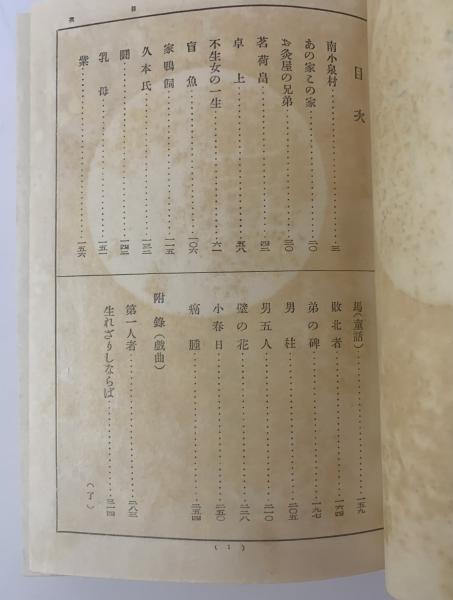 目次
目次
南小泉村……三
あの家この家……二〇
お灸屋の兄弟……三〇
茗荷畠……四三
卓上……五八
不生女の一生……六一
盲魚……一〇六
家鴨飼……一一五
久本氏……一三二
闘……一四二
乳母……一五一
紫……一五六
馬(童話)……一五九
敗北者……一六四
弟の碑……一九七
男……二〇五
男五人……二一〇
壁の花……二二八
小春日……二五〇
癌腫……二五四
附録(戯曲)
第一人者……二八三
生れざりしならば……三一四
(了)
(1)